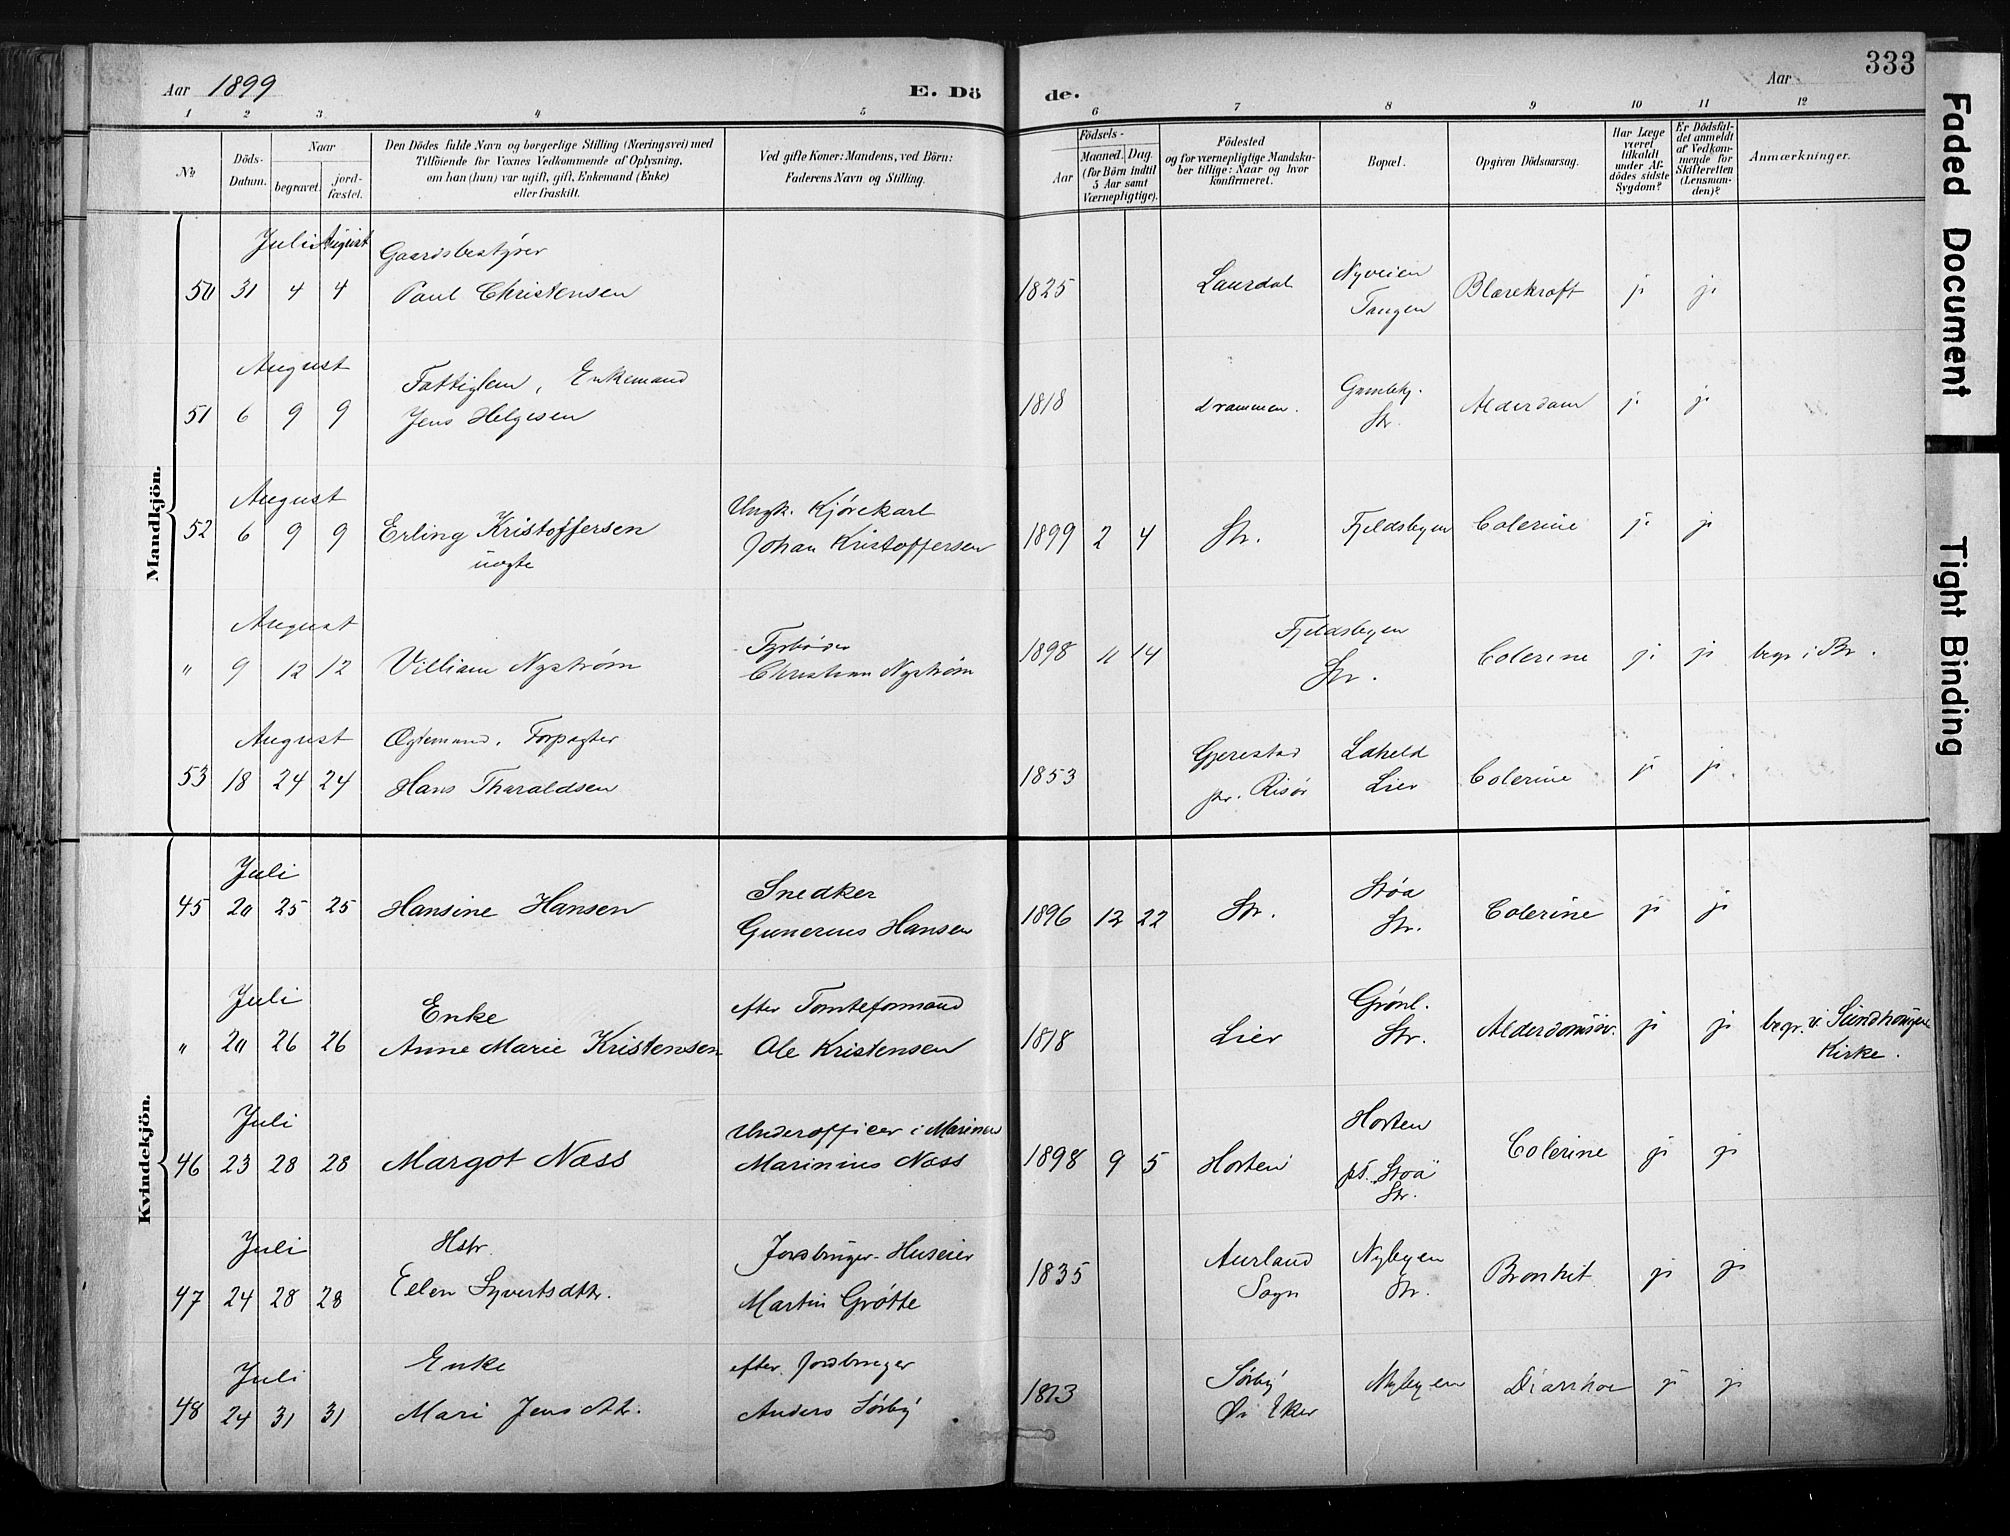 Aar 1899
E. Dö
de.
Aar
333
1 2 3 4 5 6 7 8 9 10 11 12
No
Döds-Datum.
Naar
begravet.
jord-fæstet.
Den Dödes fulde Navn og borgerlige Stilling (Næringsvei) med
Tilföiende for Voxnes Vedkommende af Oplysning,
om han (hun) var ugift, gift, Enkemand (Enke)
eller fraskilt.
Ved gifte Koner: Mandens, ved Börn:
Faderens Navn og Stilling.
Födsels-
Aar
Maaned. Dag.
(for Börn indtil
5 Aar samt
Værnepligtige).
Födested
og for værnepligtige Mandska-
ber tillige: Naar og hvor
konfirmeret.
Bopæl.
Opgiven Dödsaarsag.
Har Læge
været
tilkaldt
under Af-
dödes sidste
Sygdom?
Er Dödsfal-
det anmeldt
af Vedkom-
mende for
Skifteretten
(Lensman-
den)?
Anmærkninger.
Mandkjön.
Juli August Gaardsbestyrer Nyveien
50 31 4 4 Paul Christensen 1825 Laurdal Tangen Blærekræft j. j.
August Fattiglem, Enkemand
51 6 9 9 Jens Helgesen 1818 Drammen. Str. Alderdom j. j.
August Ungk. Kjørekarl
52 6 9 9 Erling Kristoffersen Johan Kristoffersen 1899 2 4 Str. Fjeldsbyen Colerine j. j.
uægte
August Fyrbøder Fjeldsbyen
" 9 12 12 Villiam Nystrøm Christian Nystrøm 1898 11 14 Str. Colerine j. j. begr. i Br.
August Ægtemand. Forpagter Gjerestad
53 18 24 24 Hans Tharaldsen 1853 pr. Risør Lier Colerine j. j.
Kvindekjön.
Juli Snedker Støa
45 20 25 25 Hansine Hansen Gunerius Hansen 1896 12 22 Str. Str. Colerine j. j.
Juli Enke efter Tomteformand Grønl.
" 20 26 26 Anne Marie Kristensen Ole Kristensen 1818 Lier Str. j. j. begr. v.
Kirke.
Juli Underofficer i Marinen Horten
46 23 28 28 Margot Næss Marinius Næss 1898 9 5 Horten pt. Støa Colerine j. j.
Str.
Juli Hstr. Jordbruger. Huseier Aurland Nybyen
47 24 28 28 Ellen Syvertsdttr. Martin Grøtte 1835 Sogn Str. Bronkit j. j.
Juli Enke efter Jordbruger Sørby
48 24 31 31 Mari Jensdttr. Anders Sørby 1813 Ø. Eker Nybyen Diarrhoe j. j.
Faded Document
Tight Binding